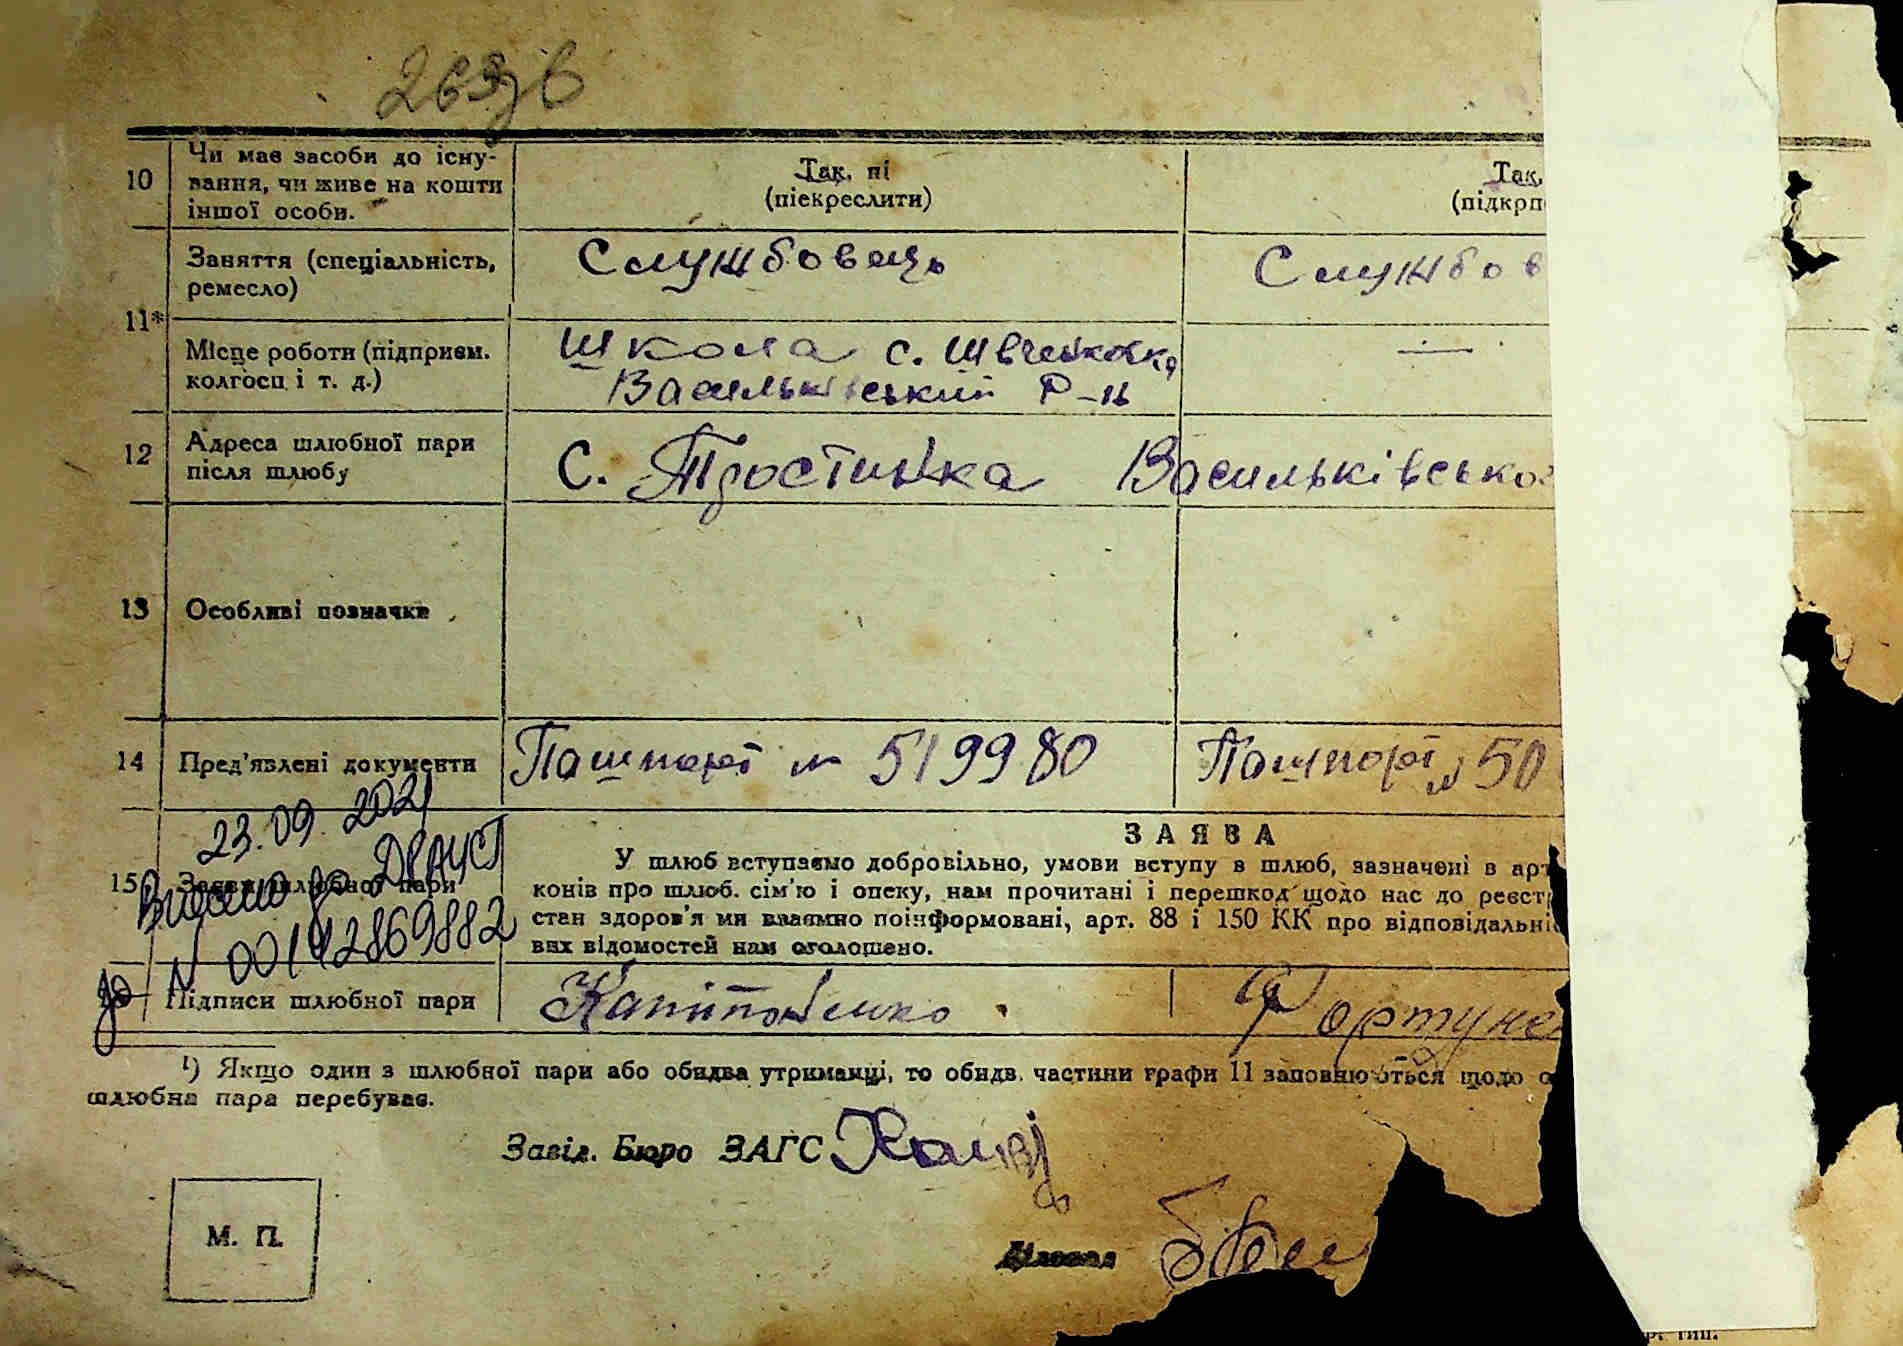 10 Чи має засоби до існу-
вання, чи живе на кошти
іншої особи.
Так, ні
(піекреслити)
Так,
(підкрп
11*
Заняття (спеціальність,
ремесло)
Службовець
Службов
Місце роботи (підприєм.
колгосп і т. д.)
Школа с.
Васильківський р-н
12 Адреса шлюбної пари
після шлюбу
С. Тростинка Васильківсько
13 Особливі позначки
14 Пред'явлені документи
Пашпорт № 519980
Пашпорт № 50
23.09.2021
Внесено до ДРАЦСГ
№ 00142869882
15 Заява шлюбної пари
ЗАЯВА
У шлюб вступаємо добровільно, умови вступу в шлюб, зазначені в арт
конів про шлюб. сім'ю і опеку, нам прочитані і перешкод щодо нас до реєст
стан здоров'я ми взаємно поінформовані, арт. 88 і 150 КК про відповідальні
вих відомостей нам оголошено.
Підписи шлюбної пари
Фортуне
¹) Якщо один з шлюбної пари або обидва утриманці, то обидв. частини графи 11 заповнюються щодо о
шлюбна пара перебуває.
Завід. Бюро ЗАГС
М. П.
Діловод
тип.